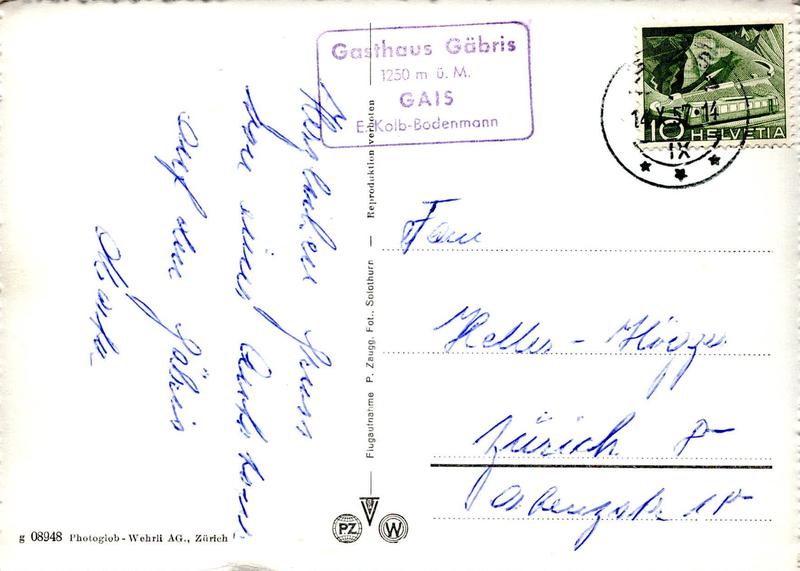 Gasthaus Gäbris
1250 m ü. M.
GAIS
E. Kolb-Bodenmann
14. X. 57. 14
IX
10 HELVETIA
Herzlichen Gruss
von einer Autotour
auf den Gäbris
Martha
Flugaufnahme P. Zaugg. Fot., Solothurn — Reproduktion verboten
Frau
Heller - Högger
Zürich
g 08948 Photoglob-Wehrli AG., Zürich
PZ W